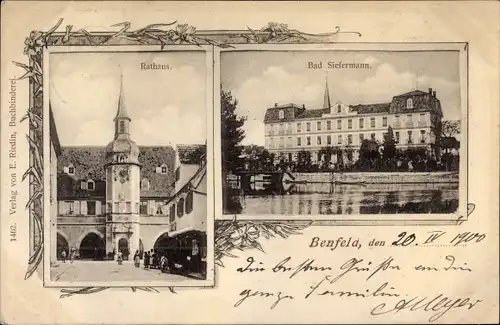 Rathaus.
Bad Siefermann.
1462. Verlag von E. Riedin, Buchbinderei.
Benfeld, den 20. IV 1900
Die besten Grüße an die
ganze Familie
A Meyer